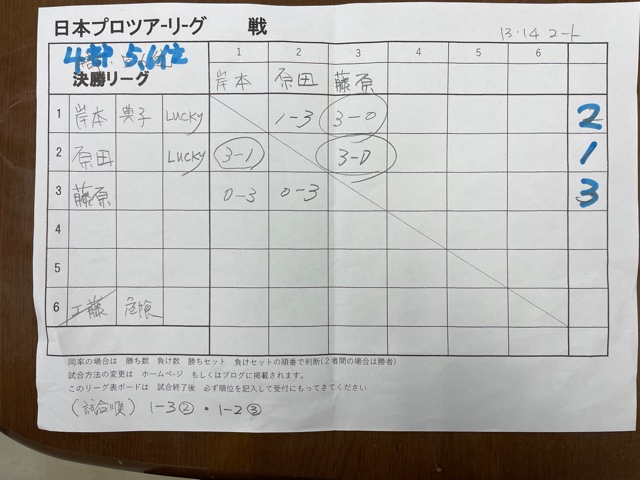 日本プロツアーリーグ 戦
13・14コート
4部 5,6位
決勝リーグ
1 2 3 4 5 6
岸本 原田 藤原
1 岸本 典子 Lucky 1-3 3-0 2
2 原田 Lucky 3-1 3-0 1
3 藤原 0-3 0-3 3
4
5
6 工藤
同率の場合は 勝ち数 負け数 勝ちセット 負けセットの順番で判断(2者間の場合は勝者)
試合方法の変更は ホームページ もしくはブログに掲載されます。
このリーグ表ボードは 試合終了後 必ず順位を記入して受付にもってきてください
(試合順) 1-3② ・ 1-2③